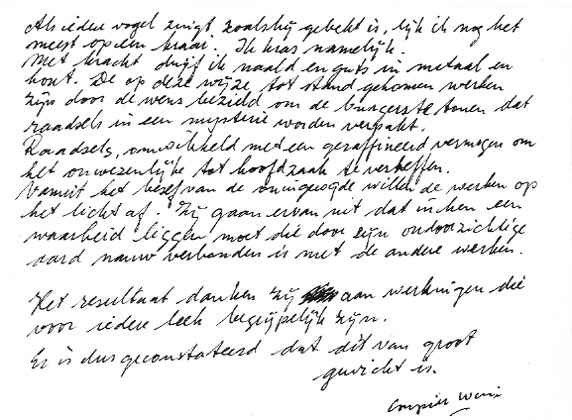 Als iedere vogel zingt zoals hij gebekt is, lijk ik nog het
meest op een kraai. Ik kras namelijk.
Met kracht druif ik naald en guts in metaal en
hout. De op deze wijze tot stand gekomen werken
zijn door de wens bezield om de burgers te tonen dat
raadsels in een mysterie worden verpakt.
Raadsels, ontwikkeld met een geraffineerd vermogen om
het onwezenlijke tot hoofdzaak te verheffen.
Vanuit het besef van de willen de werken op
het licht af. Zij gaan ervan uit dat in hen een
waarheid liggen moet die door zijn ondoorzichtige
aard nauw verbonden is met de andere werken.
Het resultaat danken zij aan werkingen die
voor iedere leek begrijpelijk zijn.
Er is dus geconstateerd dat dit van groot
gewicht is.